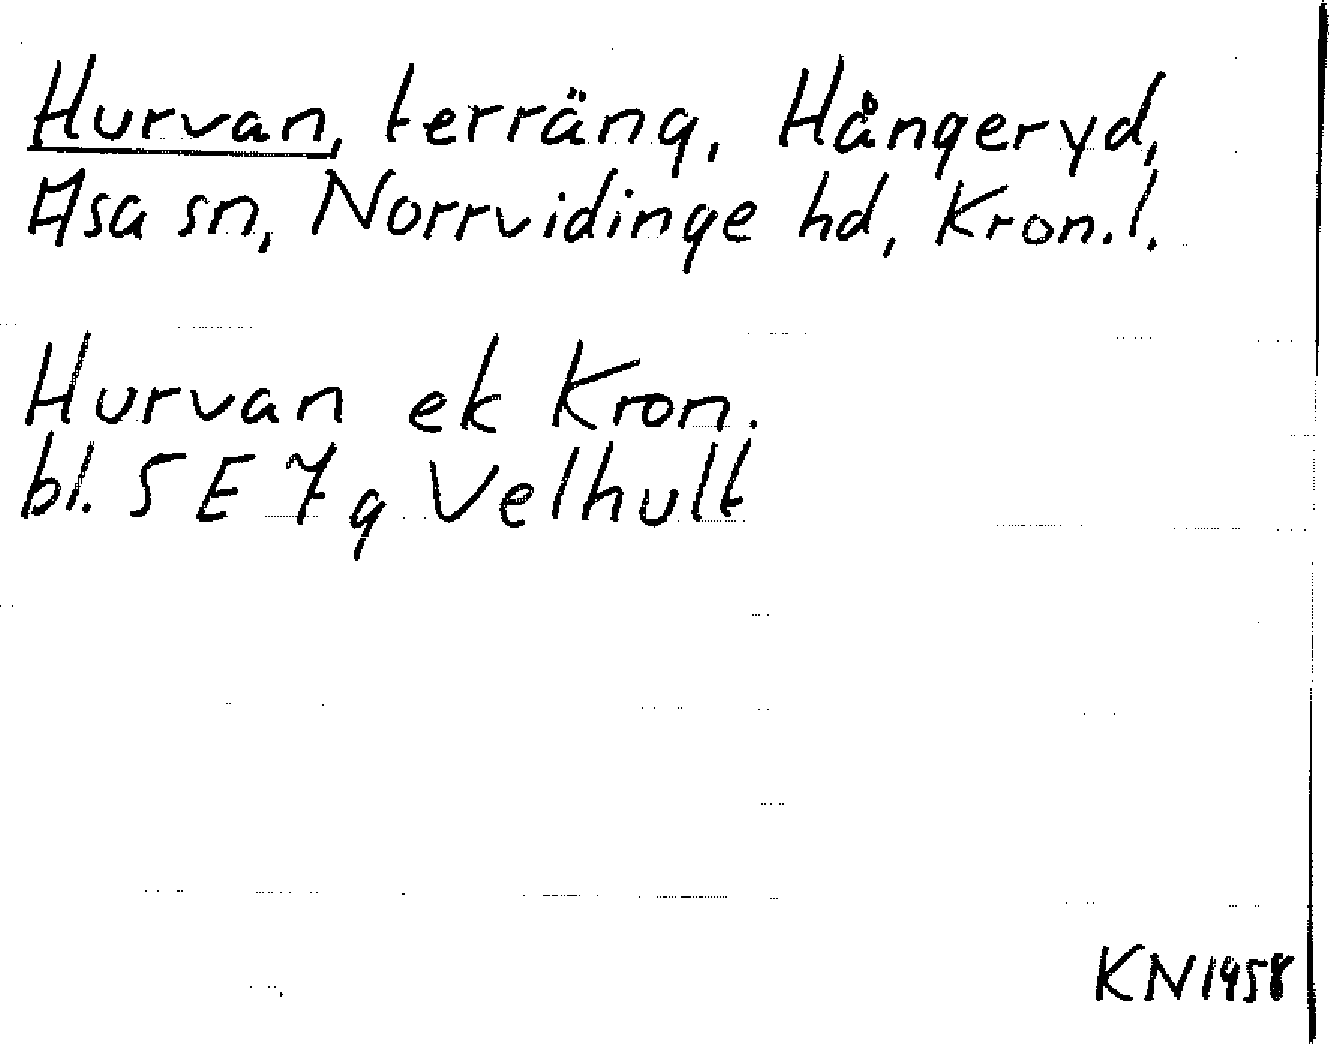 Hurvan, terräng, Hångeryd,
Asa sn, Norrvidinge hd, Kron.l.
Hurvan ek Kron.
bl. 5 E 7 g Velhult
KN 1958